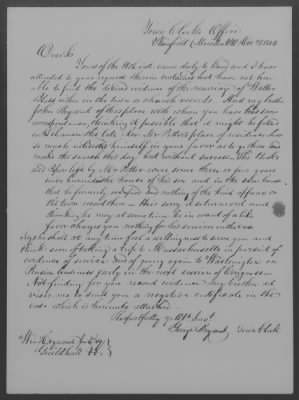 Town Clerks Office
Mansfield (Mansfield) Nov 21 1854
Dear Sir
Yours of the 18th inst came duly to hand and I have
attended to your request therein contained but have not been
able to find the desired evidence of the marriage of Walter
either in the town or church records. And my brother
John Bryant of this place with whom you have had some
correspondence, thinking it possible that it might be found
in Lebanon the late Revd Mr Potters place of residence has
so much interested himself in your favor as to go there and
make the search this day but without success. The
and kept by Mr Potter over some three or four years
since
that he formerly occupied and nothing of the kind appears on
the town record there
thinking he may at some time be in want of a like
favor charges you nothing for his services
he shall at any time feel a willing
think some of taking a trip to Massachusetts in pursuit of
evidence of service and of going again to Washington on
Pension business early in the next session of Congress
Not finding for you record evidence my brother
me to send you a negative certificate in the
case which is herewith attached
Respectfully yr Obt Servt
George Bryant Town Clerk
Wm Heywood Jr Esq
Guildhall Vt